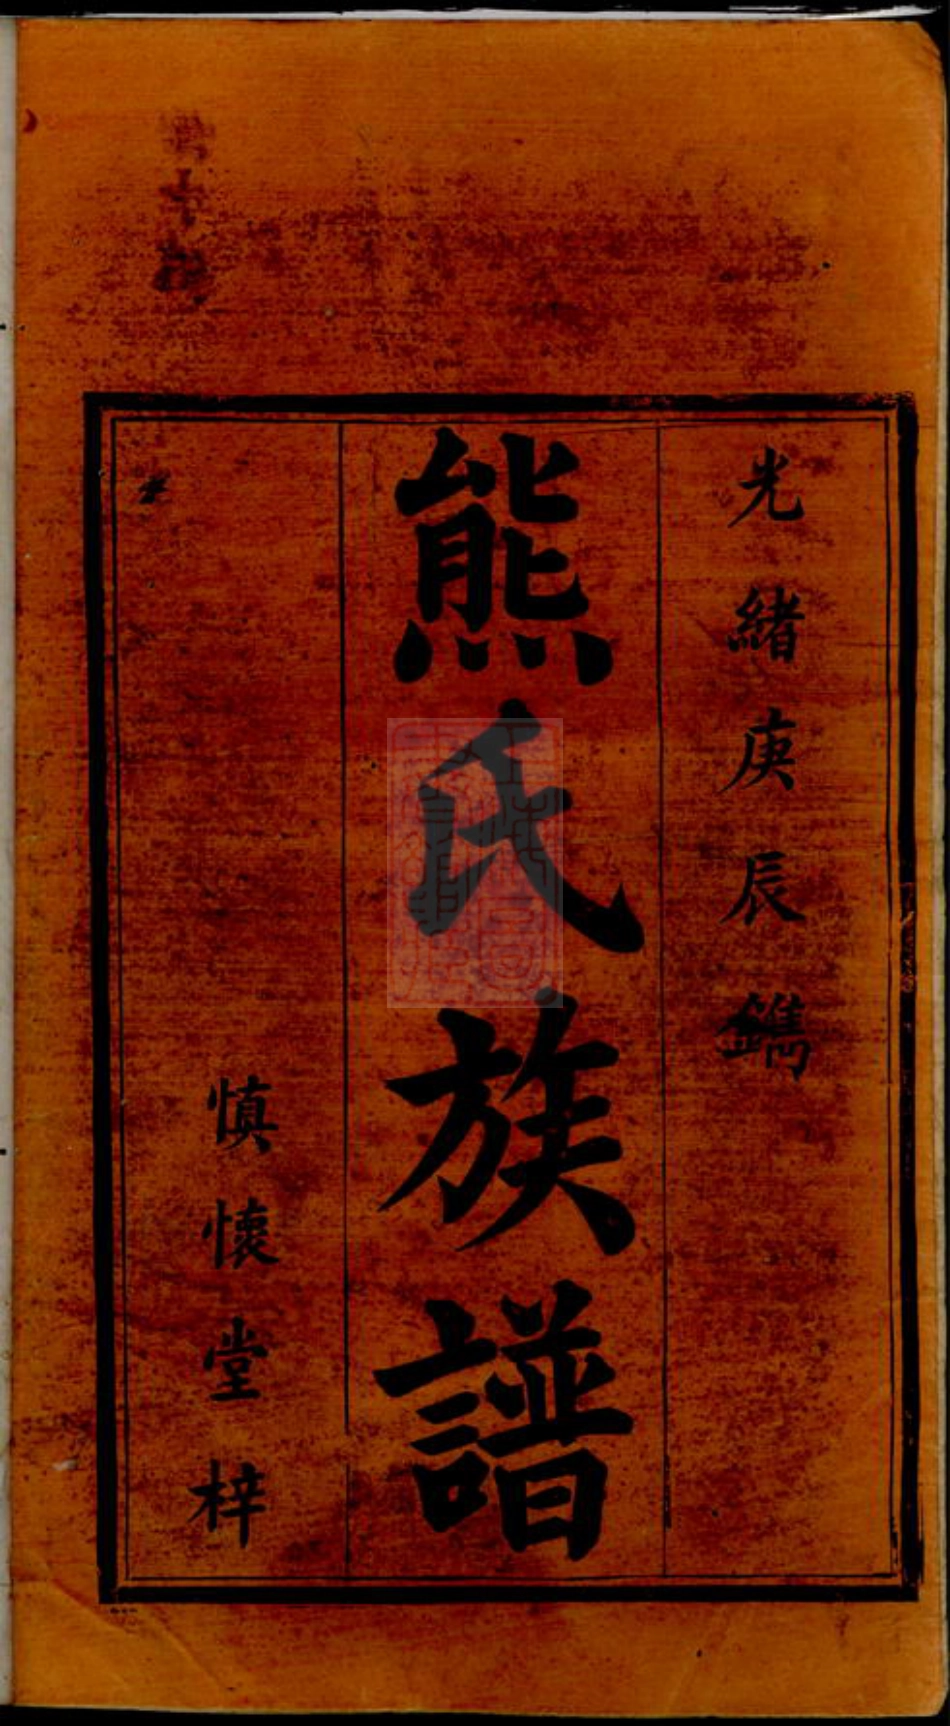 光緒庚辰鐫
熊氏族譜
慎懷堂梓